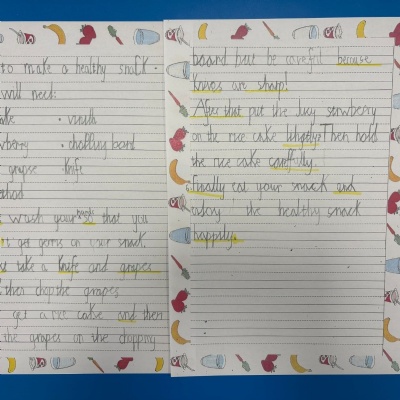 to make a healthy snack.
will need:
• chopping board
grapse knife
wash your hands that you
get germs on your snack.
take a knife and grapes
then chop the grapes
get a rice cake and then
the grapes on the chopping
board but be careful because
knives are sharp!
After that put the strwberry
on the rice cake Then hold
the rice cake carefully.
Finally eat your snack and
enjoy the healthy snack
happily.